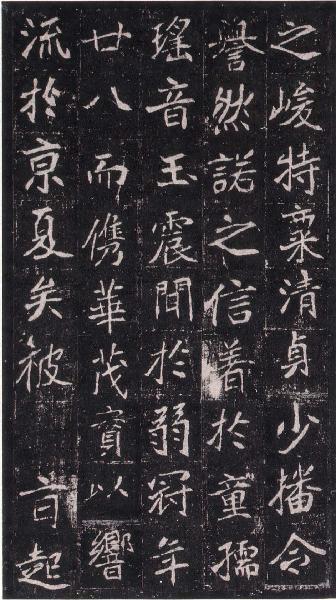 之峻特稟清貞少播令
譽然諾之信著於童孺
瑤音玉震聞於弱冠年
廿八而儁華茂實以響
流於京夏矣被旨起